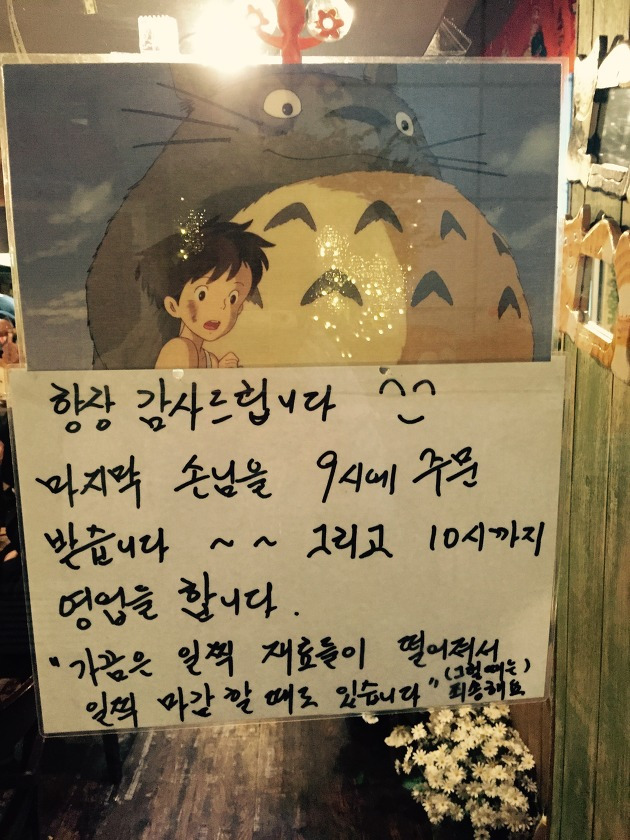 항상 감사드립니다
마지막 손님을 9시에 주문
받습니다 ~ ~ 그리고 10시까지
영업을 합니다.
"가끔은 일찍 재료들이 떨어져서
일찍 마감 할 때도 있습니다" (그럴때는)
죄송해요